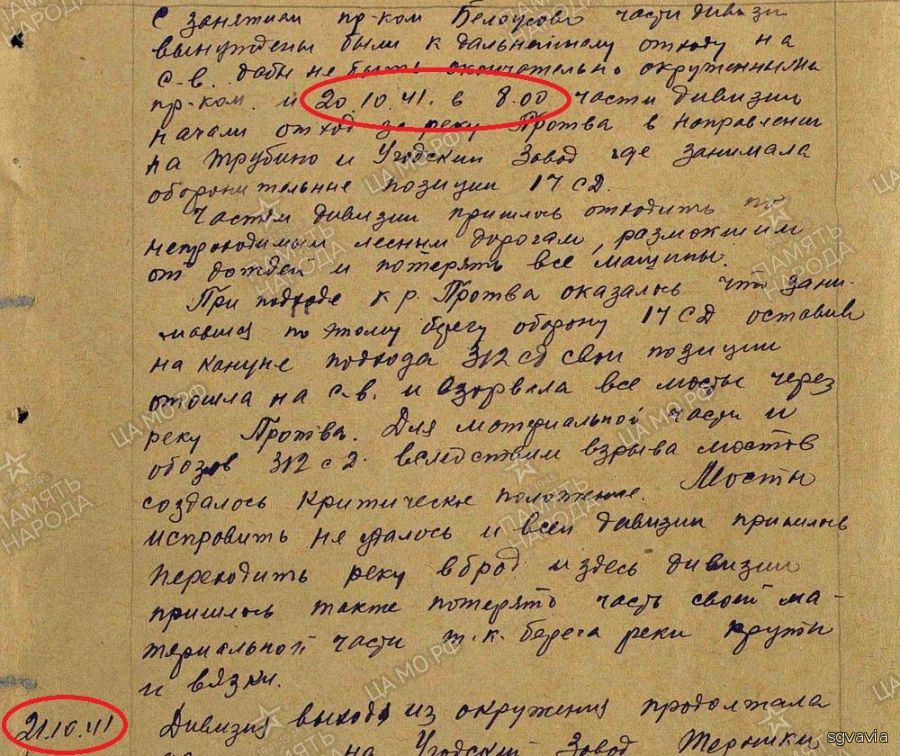 С занятием пр-ком Белоусова части дивизи
вынуждены были к дальнейшему отходу на
с.-в. дабы не быть окончательно окруженными
пр-ком. и 20.10.41. в 8.00 части дивизии
начали отход за реку Протва в направлении
на Трубино и Угодский Завод где занимала
оборонительные позиции 17 СД.
Частям дивизии пришлось отходить по
непроходимым лесным дорогам, размокшим
от дождей и потерять все машины.
При подходе к р. Протва оказалось что зани-
мавшая по этому берегу оборону 17 СД оставив
на кануне подхода 312 сд свои позиции
отошла на с.-в. и взорвала все мосты через
реку Протва. Для материальной части и
обозов 312 с д. вследствии взрыва мостов
создалось критическое положение. Мосты
исправить не удалось и всей дивизии пришлось
переходить реку вброд и здесь дивизии
пришлось также потерять часть своей ма-
териальной части т.к. берега реки круты
и вязки.
21.10.41 Дивизия выходя из окружения продолжала
на Угодский Завод Черники
ЦАМО РФ
ПАМЯТЬ НАРОДА
sgvavia